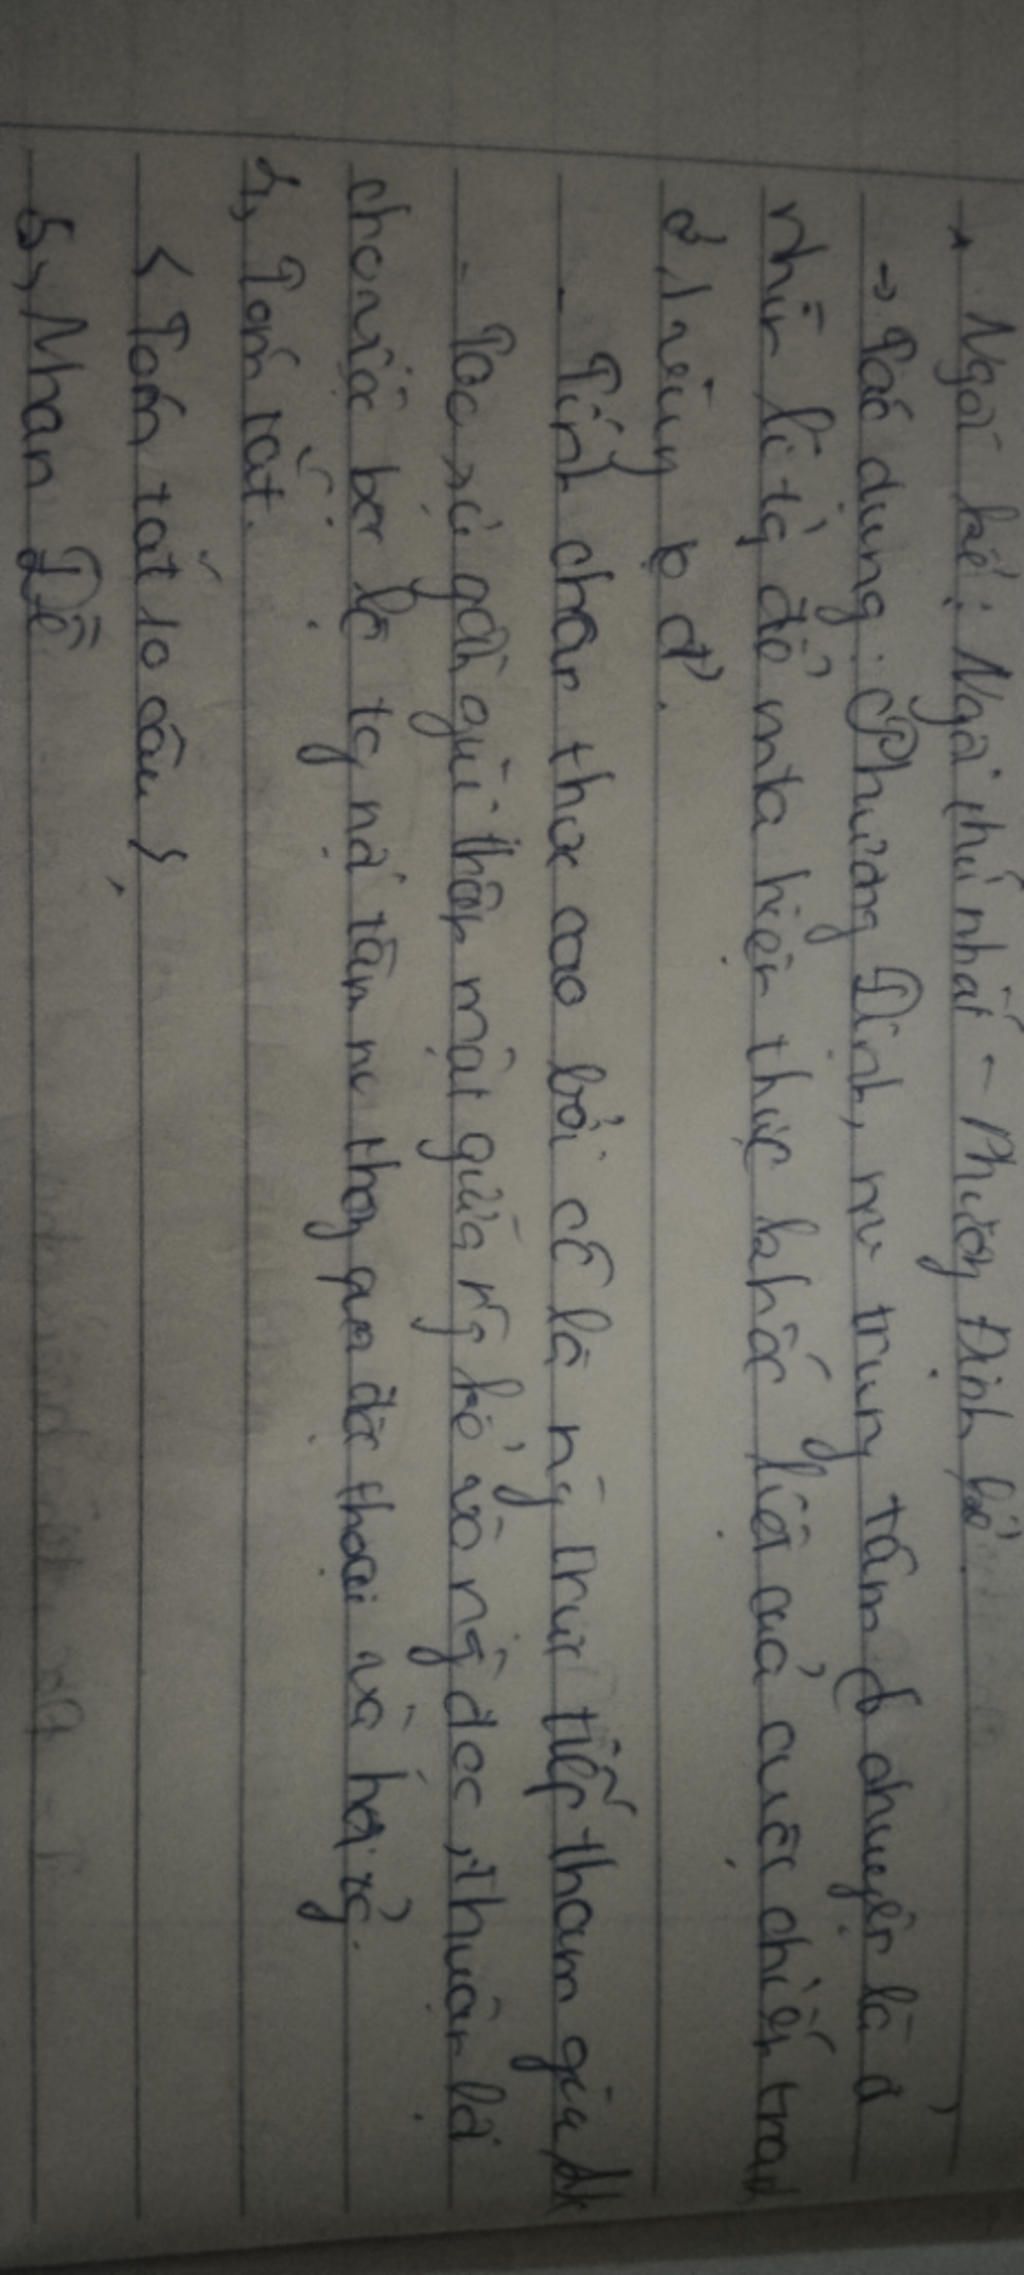 * Ngôi kể: Ngôi thứ nhất - Phương Định kể
→ Tác dụng: Phương Định, nv trung tâm chuyện là
nhìn lí tg để mta hiện thực khốc liệt cuả cuộc chiến tranh
vùng
- Tính chân thực cao bởi cô là ng trực tiếp tham gia,
- Tạo sự gần gũi thân mật giữa ng kể và ng đọc, thuận lợi
cho việc bộc lộ tg nd tâm nv thông qua độc thoại và hơi
4, Tóm tắt.
{ Tóm tắt 10 câu }
5, Nhan Đề